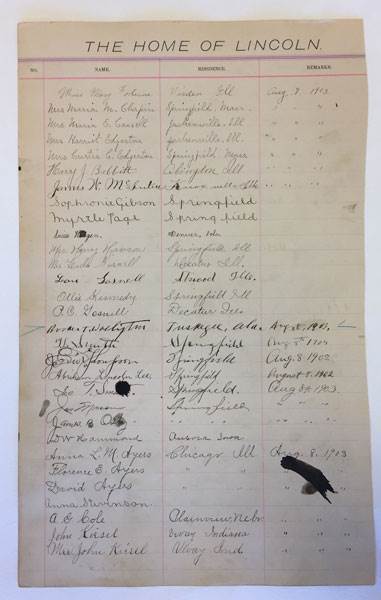 THE HOME OF LINCOLN.
NO. NAME. RESIDENCE. REMARKS.
Miss May Virden Ill Aug. 8, 1903
Mrs Maria M. Chapin Springfield, Mass. " " "
Mrs Maria E. Jacksonville, Ill. " " "
Mrs Harriet Edgerton Jacksonville, Ill. " " "
Mrs Curtis C. Edgerton Springfield " " "
Henry J. Babbitt Abingdon Ill " " "
James W. Knoxville Ills
Sophronie Gibson Springfield
Myrtle Page Springfield
Denver, Colo
Mrs Henry Springfield Ill
Mrs Decatur Ill.
Gosnell Atwood Ills.
Ollie Kennedy Springfield Ill
P.C. Gosnell Decatur Ills
Booker T. Washington Tuskegee, Ala. Aug. 8, 1903.
Smith Springfield Aug 8th 1903
Thompson Springfield Aug. 8 1902
Abraham Lincoln Lee Springfield August 8, 1902
Geo T. Springfield. Aug 8th 1903
Springfield " "
James E " " " " " "
D W Hammond Aurora Iowa
Anna L. M. Ayers Chicago Ill Aug. 8, 1903
Florence E. Ayers " "
David Ayers " "
Anna Stevenson
A. E. Cole Plainview, Nebr. " "
John Kiesel Vevay Indiana " " "
Mrs John Kiesel Vevay Ind " " "